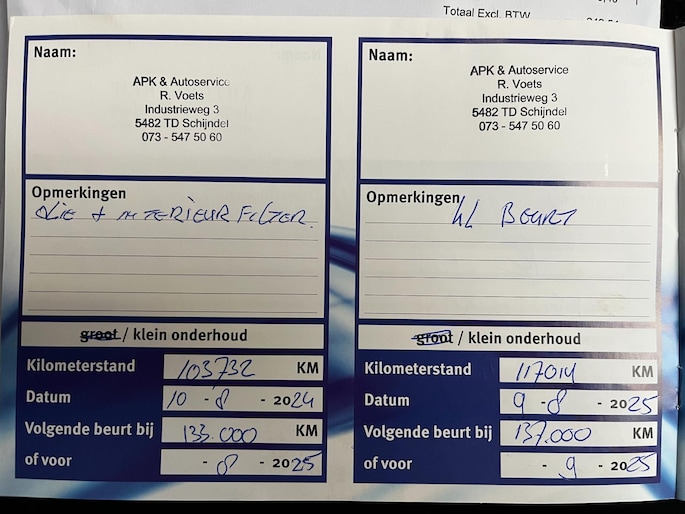 Totaal Excl. BTW
Naam:
APK & Autoservice
R. Voets
Industrieweg 3
5482 TD Schijndel
073 - 547 50 60
Opmerkingen
OLIE + INTERIEUR FILTER.
groot / klein onderhoud
Kilometerstand 103732 KM
Datum 10 - 8 - 2024
Volgende beurt bij 133.000 KM
of voor - 8 - 2025
Naam:
APK & Autoservice
R. Voets
Industrieweg 3
5482 TD Schijndel
073 - 547 50 60
Opmerkingen
KL BEURT
groot / klein onderhoud
Kilometerstand 117014 KM
Datum 9 - 8 - 2025
Volgende beurt bij 137.000 KM
of voor - 9 - 2025